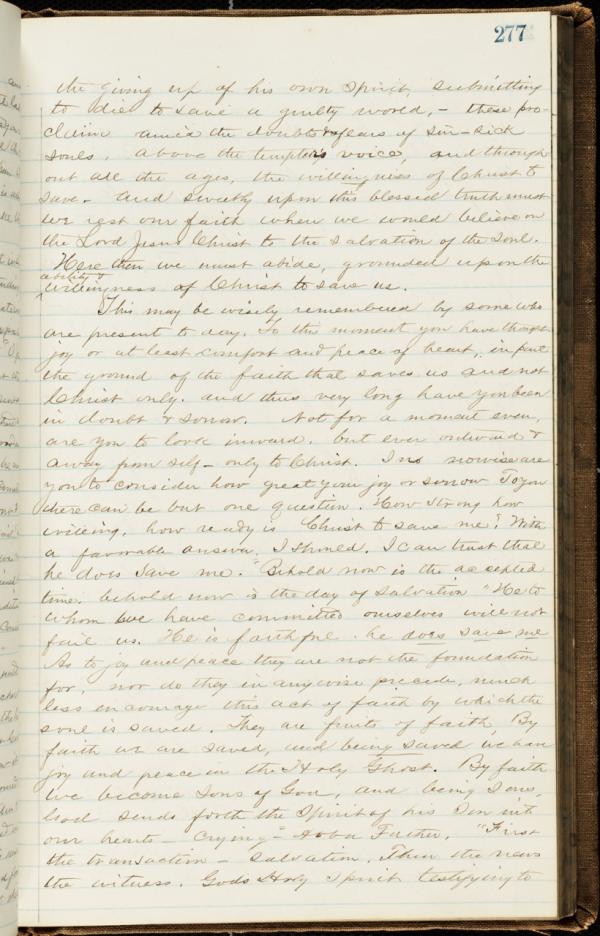 277
the giving up of his own spirit, submitting
to die to save a guilty world, - these pro-
claim amid the doubts & fears of sin-sick
souls, above the tempters voice, and through
out all the ages, the willingness of Christ to
save. And sweetly upon this blessed truth must
we rest our faith when we would believe on
the Lord Jesus Christ to the salvation of the soul.
Here then we must abide, grounded upon the
ability &
willingness of Christ to save us.
This may be wisely remembered by some who
are present to day. To this moment you have thought
joy or at least comfort and peace of heart, in part
the ground of the faith that saves us and not
Christ only. and thus very long have you been
in doubt & sorrow. Not for a moment even,
are you to look inward. but ever outward &
away from self - only to Christ. In no nowise are
you to consider how great your joy or sorrow To you
there can be but one question. How strong how
willing, how ready is Christ to save me? With
a favorable answer, I should, I can trust that
he does save me. "Behold now is the accepted
time, behold now is the day of salvation" He to
whom we have committed ourselves will not
fail us. He is faithful. he does save me
As to joy and peace they are not the foundation
for, nor do they in anywise precede, much
less encourage this act of faith by which the
soul is saved. They are fruits of faith. By
faith we are saved, and being saved we have
joy and peace in the Holy Ghost. By faith
we become sons of God, and being sons,
God sends forth the Spirit of his Son into
our hearts - crying - "Abba Father." First
the transaction - salvation. Then the news
the witness. Gods Holy Spirit testifying to